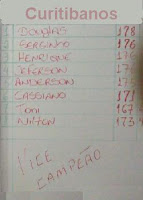 Curitibanos
DOUGLAS 178
SERGINHO 176
HENRIQUE 176
JEFERSON
ANDERSON
CASSIANO 171
TONI 167
NILTON 173
VICE
CAMPEÃO